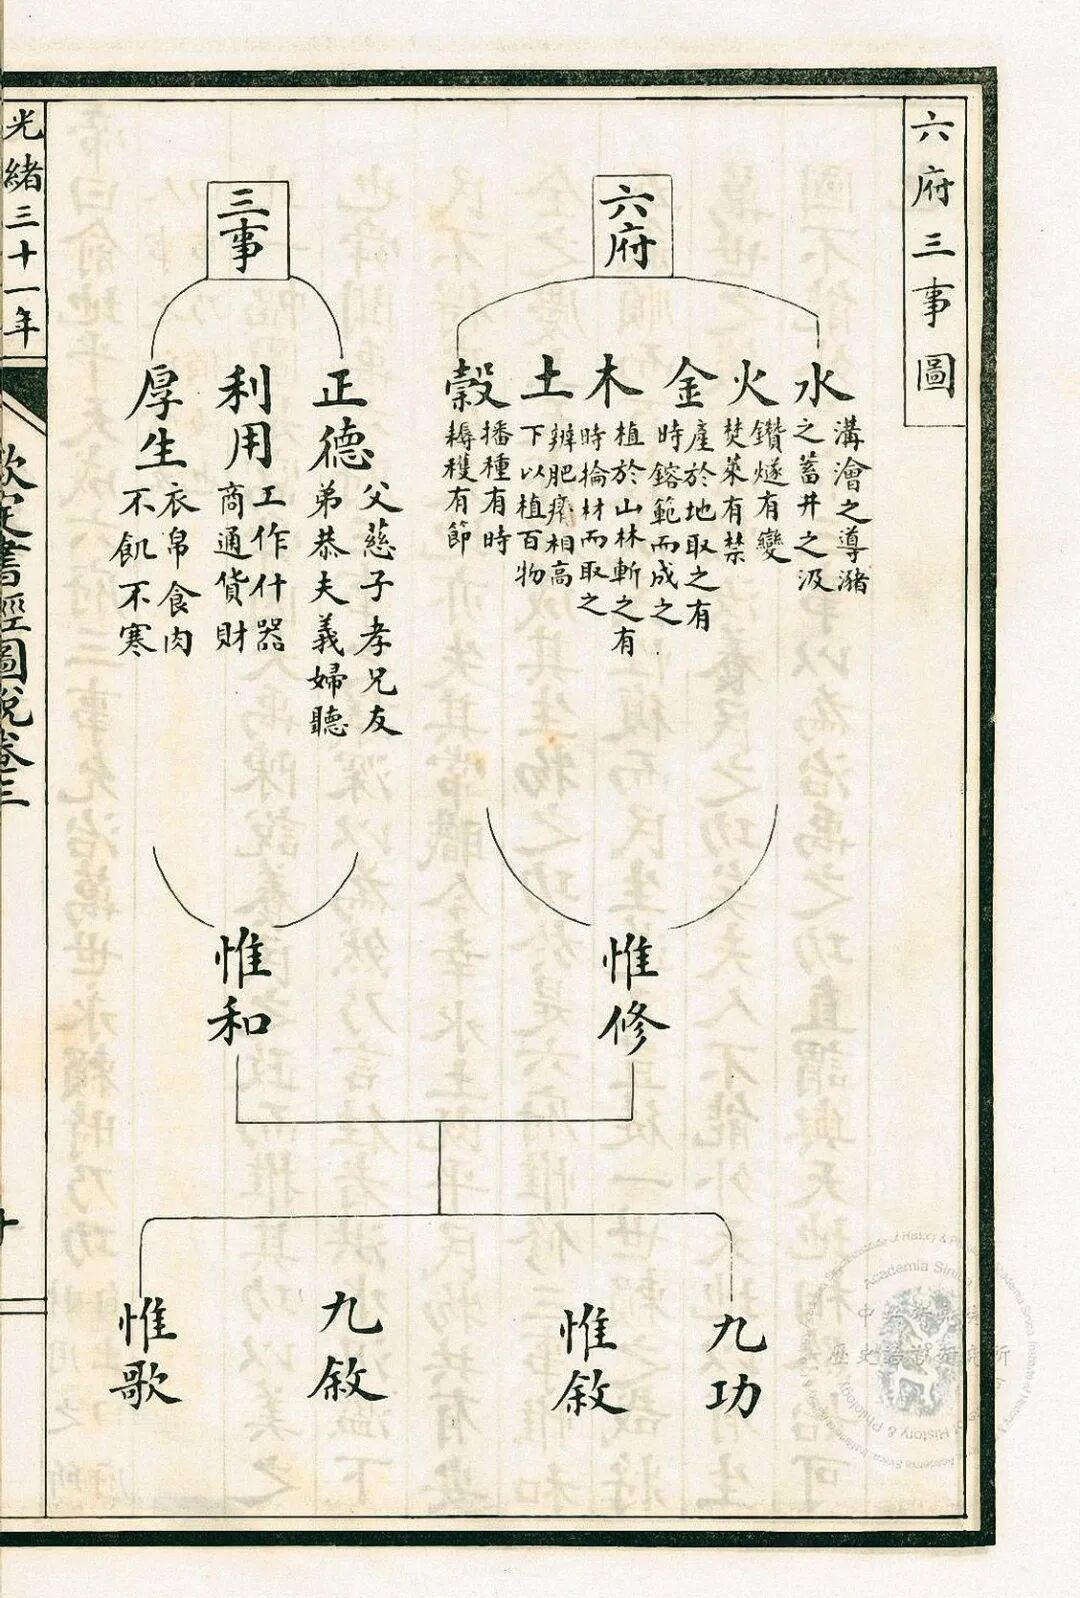 六府三事圖
六府
水
溝澮之導瀦
之蓄井之汲
火
鑽燧有變
焚萊有禁
金
產於地取之有
時鎔範而成之
木
植於山林斬之有
時掄材而取之
土
辨肥瘠相高
下以植百物
穀
播種有時
耨穫有節
惟修
三事
正德
父慈子孝兄友
弟恭夫義婦聽
利用
工作什器
商通貨財
厚生
衣帛食肉
不飢不寒
惟和
九功
惟敘
九敘
惟歌
光緒三十一年
欽定書經圖說卷三
Academia Sinica
歷史語言研究所